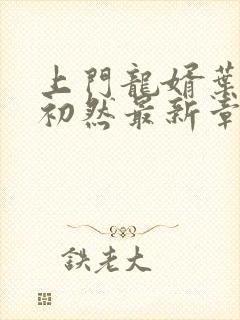 上門龍婿葉
初然最新章
鉄老大